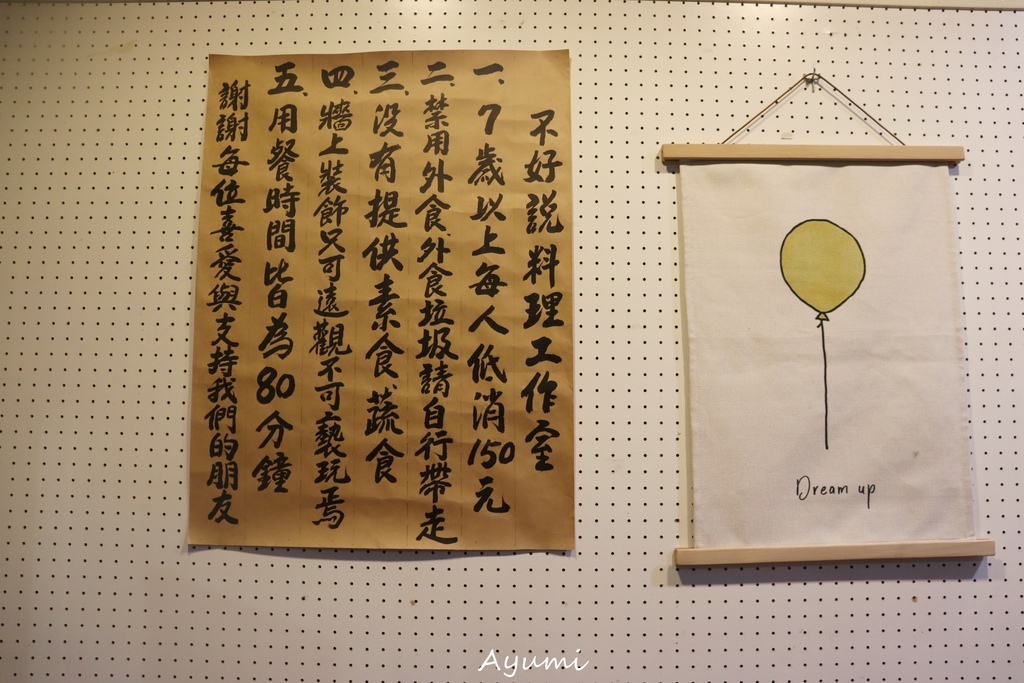 不好說料理工作室
一、7歲以上每人低消150元
二、禁用外食、外食垃圾請自行帶走
三、沒有提供素食、蔬食
四、牆上裝飾只可遠觀不可褻玩焉
五、用餐時間皆為80分鐘
謝謝每位喜愛與支持我們的朋友
Dream up
Ayumi